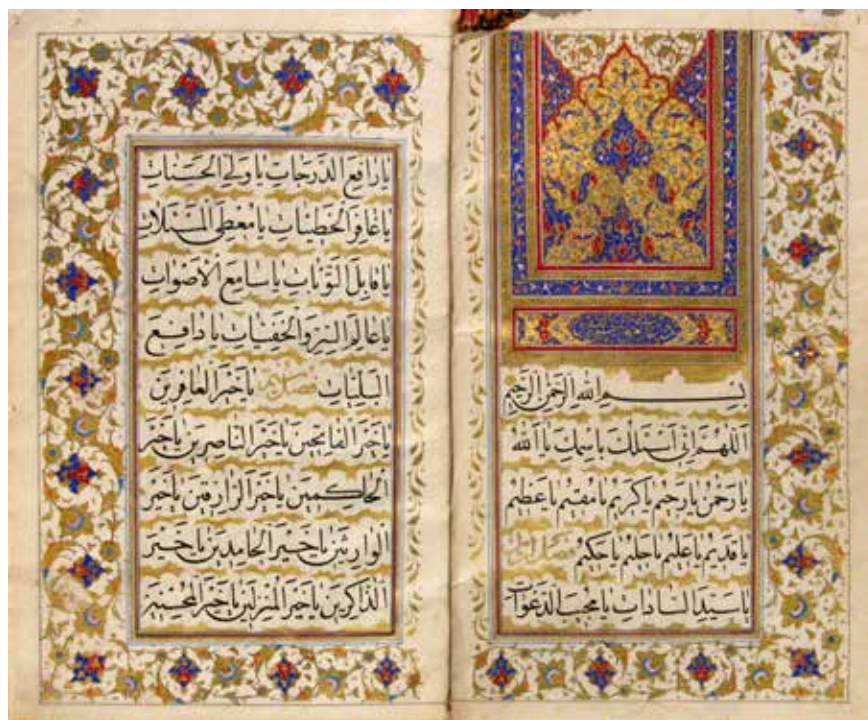 بِسْمِ اللهِ الرَّحْمنِ الرَّحِيمِ
اَللّهُمَّ اِنّي اَسْئَلُكَ بِاسْمِكَ يا اَللهُ
يا رَحْمنُ يا رَحيمُ يا كَريمُ يا مُقيمُ يا عَظيمُ
يا قَديمُ يا عَليمُ يا حَليمُ يا حَكيمُ فصل
يا سَيِّدَ السّاداتِ يا مُجيبَ الدَّعَواتِ
يا رافِعَ الدَّرَجاتِ يا وَلِيَّ الْحَسَناتِ
يا غافِرَ الْخَطيئاتِ يا مُعْطِيَ الْمَسْئَلاتِ
يا قابِلَ التَّوْباتِ يا سامِعَ الْاَصْواتِ
يا عالِمَ السِّرِّ وَالْخَفِيّاتِ يا دافِعَ
الْبَلِيّاتِ فصل يا خَيْرَ الْغافِرينَ
يا خَيْرَ الْفاتِحينَ يا خَيْرَ النّاصِرينَ يا خَيْرَ
الْحاكِمينَ يا خَيْرَ الرّازِقينَ يا خَيْرَ
الْوارِثينَ يا خَيْرَ الْحامِدينَ يا خَيْرَ
الذّاكِرينَ يا خَيْرَ الْمُنْزِلينَ يا خَيْرَ الْمُحْسِنينَ